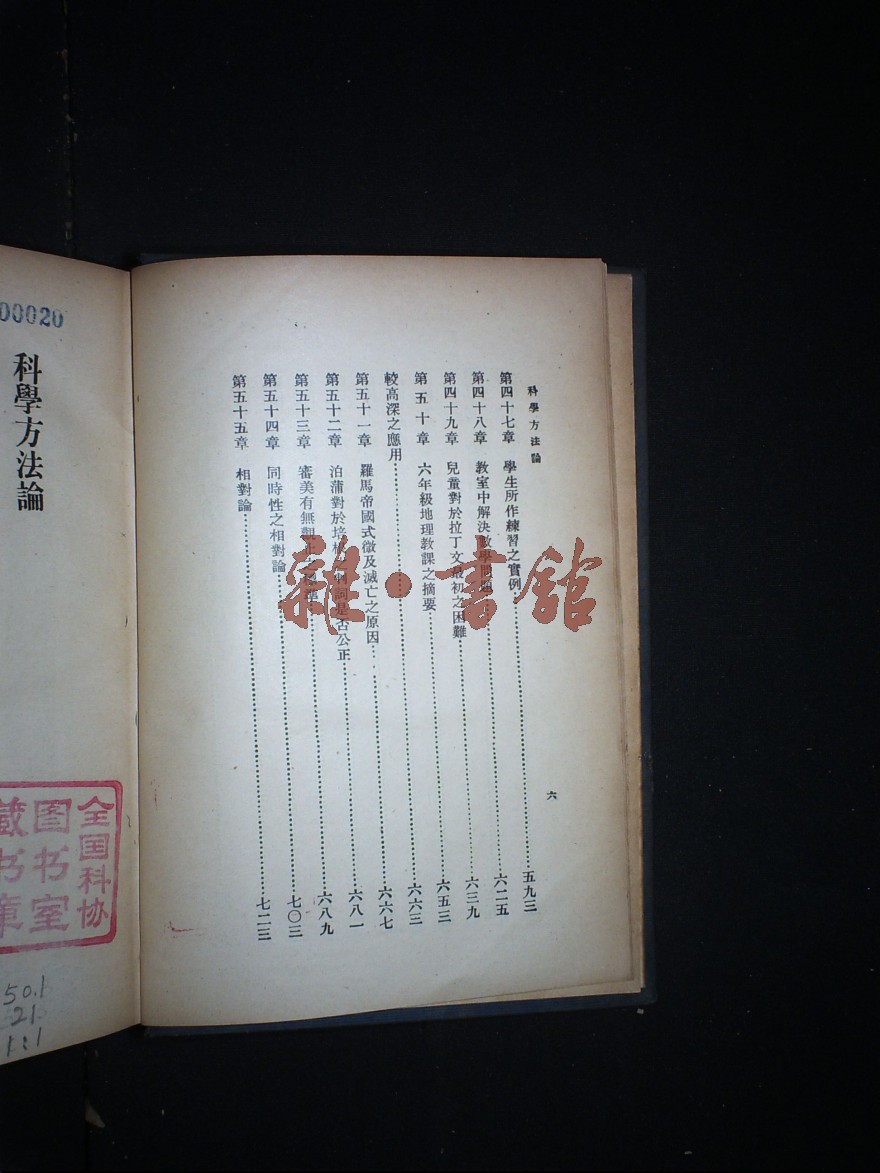 科學方法論
六
第四十七章 學生所作練習之實例……五九三
第四十八章 教室中解決數學問題……六二五
第四十九章 兒童對於拉丁文最初之困難……六三九
第五十章 六年級地理教課之摘要……六五三
較高深之應用……六六三
第五十一章 羅馬帝國式微及滅亡之原因……六六七
第五十二章 泊蒲對於培根之 詞是否公正……六八一
第五十三章 審美有無 標準……六八九
第五十四章 同時性之相對論……七〇三
第五十五章 相對論……七二三
00020
科學方法論
全国科协
图书室
藏书章
50.1
21
1:1
雜·書館